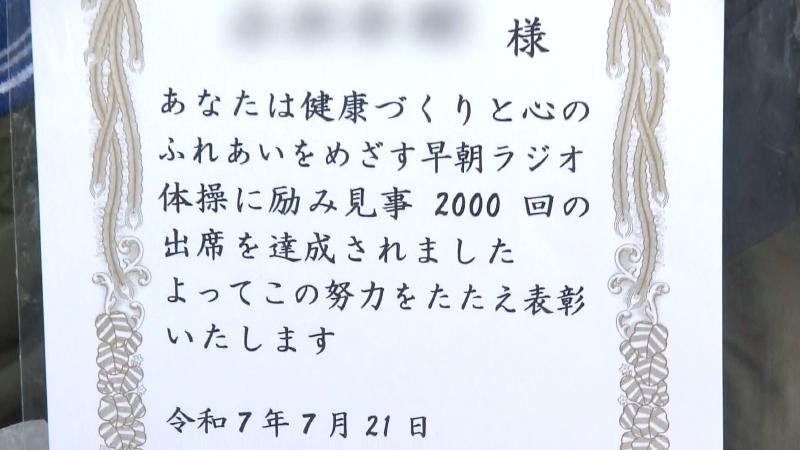 様
あなたは健康づくりと心の
ふれあいをめざす早朝ラジオ
体操に励み見事 2000 回の
出席を達成されました
よってこの努力をたたえ表彰
いたします
令和7年7月21日